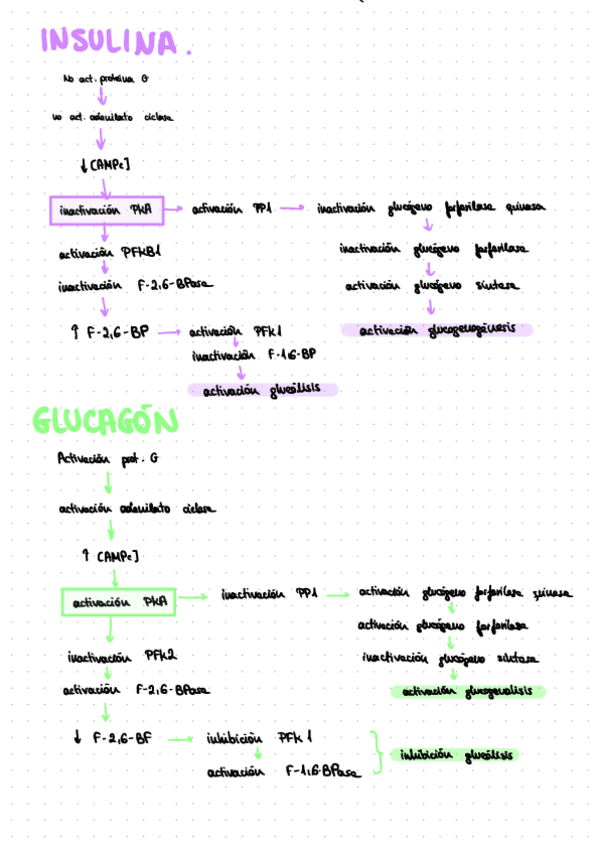 INSULINA.
No act. proteína G
no act. adenilato ciclasa
↓ [AMPc]
inactivación PKA → activación PP1 → inactivación glucógeno fosforilasa quinasa
activación PFKB1
inactivación glucógeno fosforilasa
inactivación F-2,6-BPasa
activación glucógeno sintasa
↑ F-2,6-BP → activación PFK1
activación glucogenogénesis
inactivación F-1,6-BP
activación glucólisis
GLUCAGÓN
Activación prot. G
activación adenilato ciclasa
↑ [AMPc]
activación PKA → inactivación PP1 → activación glucógeno fosforilasa quinasa
activación glucógeno fosforilasa
inactivación PFK2
inactivación glucógeno sintasa
activación F-2,6-BPasa
activación glucogenolisis
↓ F-2,6-BF → inhibición PFK1
inhibición glucólisis
activación F-1,6-BPasa